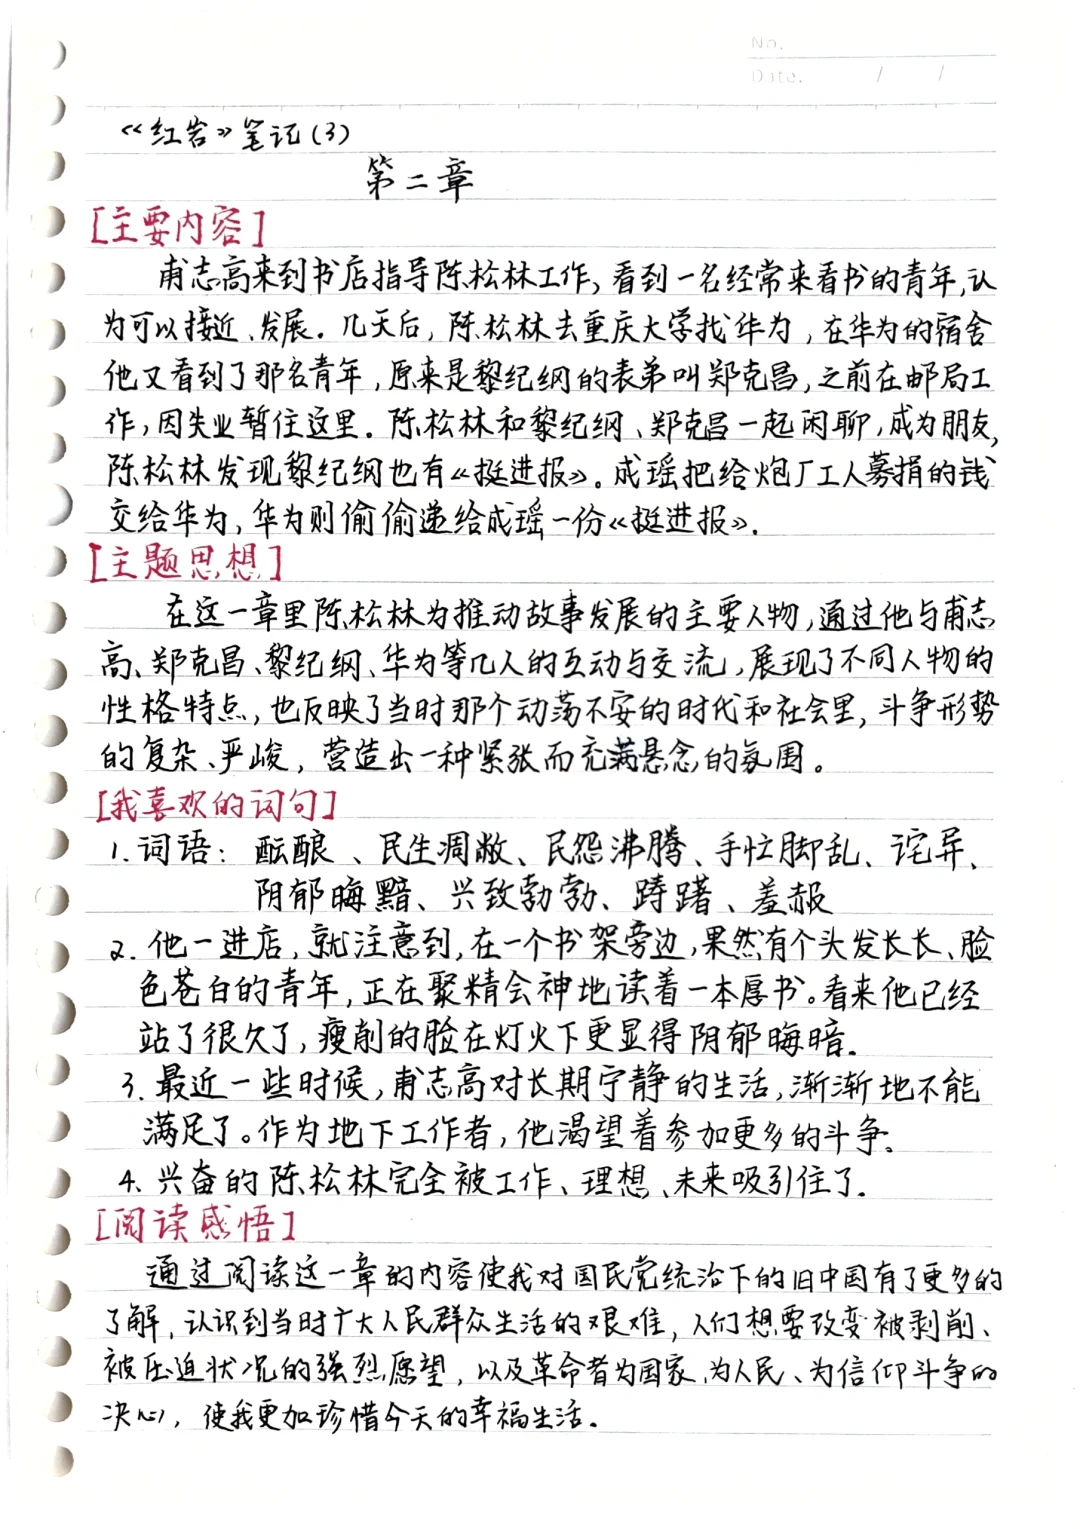 No.
Date. / /
《红岩》笔记(3)
第二章
[主要内容]
甫志高来到书店指导陈松林工作,看到一名经常来看书的青年,认
为可以接近、发展.几天后,陈松林去重庆大学找华为,在华为的宿舍
他又看到了那名青年,原来是黎纪纲的表弟叫郑克昌,之前在邮局工
作,因失业暂住这里.陈松林和黎纪纲、郑克昌一起闲聊,成为朋友,
陈松林发现黎纪纲也有《挺进报》.成瑶把给炮厂工人募捐的钱
交给华为,华为则偷偷递给成瑶一份《挺进报》.
[主题思想]
在这一章里陈松林为推动故事发展的主要人物,通过他与甫志
高、郑克昌、黎纪纲、华为等几人的互动与交流,展现了不同人物的
性格特点,也反映了当时那个动荡不安的时代和社会里,斗争形势
的复杂、严峻,营造出一种紧张而充满悬念的氛围。
[我喜欢的词句]
1.词语:酝酿、民生凋敝、民怨沸腾、手忙脚乱、诧异、
阴郁晦黯、兴致勃勃、踌躇、羞赧
2.他一进店,就注意到,在一个书架旁边,果然有个头发长长、脸
色苍白的青年,正在聚精会神地读着一本厚书。看来他已经
站了很久了,瘦削的脸在灯火下更显得阴郁晦暗.
3.最近一些时候,甫志高对长期宁静的生活,渐渐地不能
满足了。作为地下工作者,他渴望着参加更多的斗争.
4.兴奋的陈松林完全被工作、理想、未来吸引住了.
[阅读感悟]
通过阅读这一章的内容使我对国民党统治下的旧中国有了更多的
了解,认识到当时广大人民群众生活的艰难,人们想要改变被剥削、
被压迫状况的强烈愿望,以及革命者为国家、为人民、为信仰斗争的
决心,使我更加珍惜今天的幸福生活.